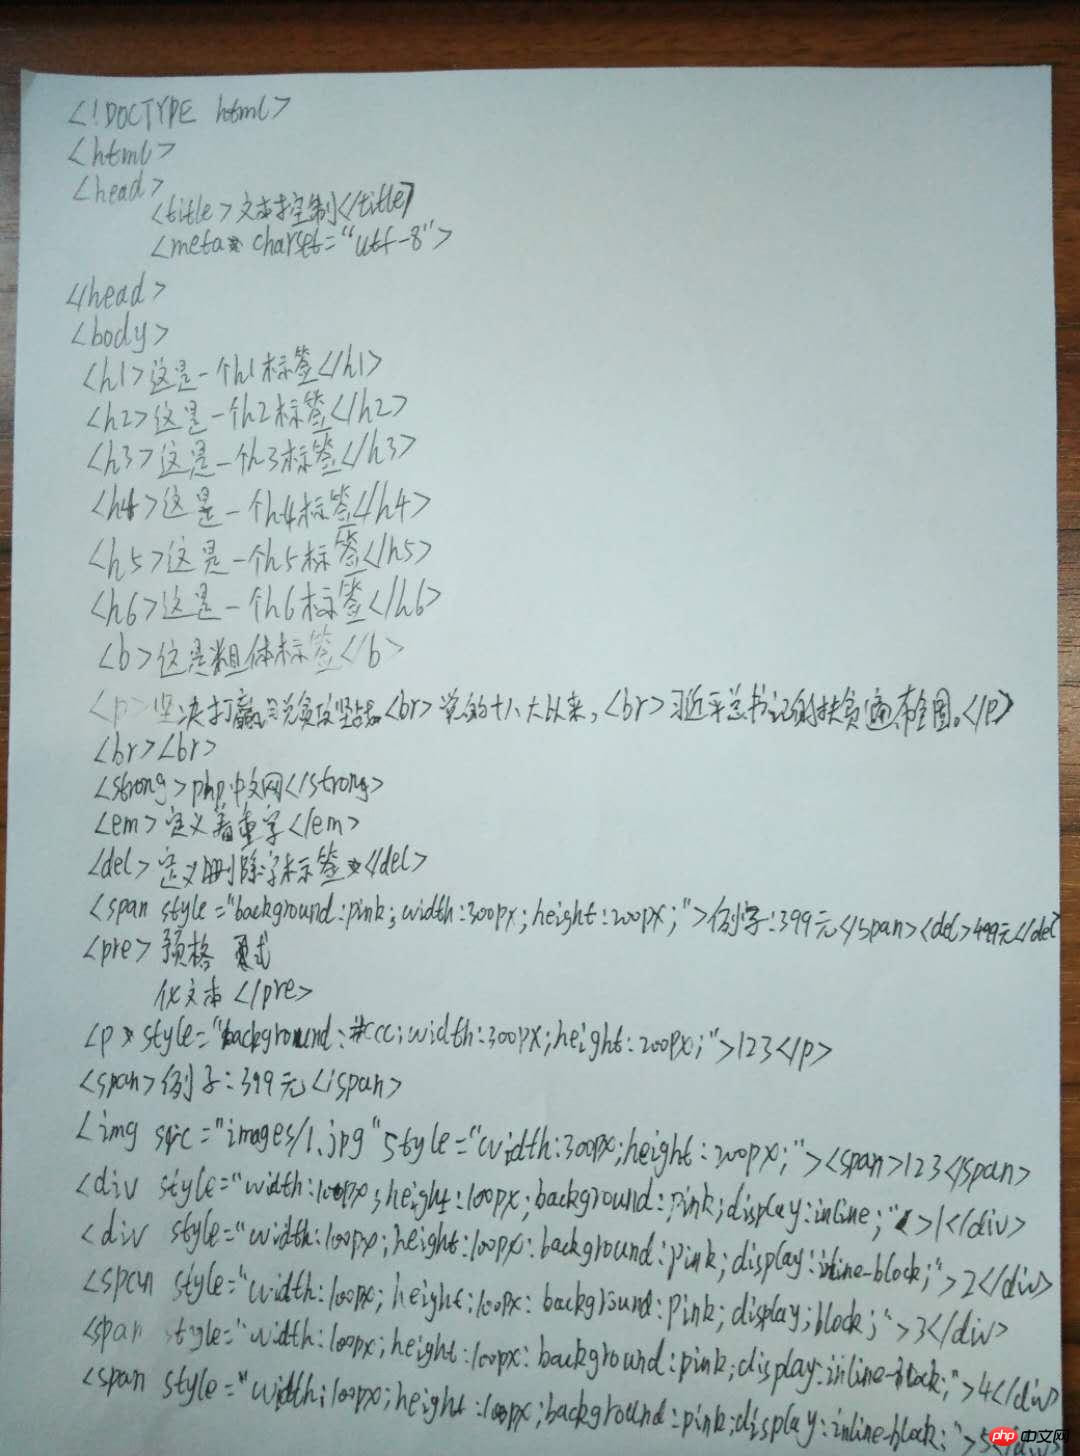 <!DOCTYPE html>
<html>
<head>
<title>文本控制</title>
<meta charset="utf-8">
</head>
<body>
<h1>这是一个h1标签</h1>
<h2>这是一个h2标签</h2>
<h3>这是一个h3标签</h3>
<h4>这是一个h4标签</h4>
<h5>这是一个h5标签</h5>
<h6>这是一个h6标签</h6>
<b>这是粗体标签</b>
<p>坚决打赢脱贫攻坚战<br>党的十八大以来,<br>习近平总书记的扶贫遍布全国。</p>
<br><br>
<strong>php中文网</strong>
<em>定义着重字</em>
<del>定义删除字标签</del>
<span style="background:pink;width:300px;height:200px;">例子:399元</span><del>499元</del
<pre>预格 式
化文本</pre>
<p style="background:#ccc;width:300px;height:200px;">123</p>
<span>例子:399元</span>
<img src="images/1.jpg"style="width:300px;height:200px;"><span>123</span>
<div style="width:100px;height:100px;background:pink;display:inline;">1</div>
<div style="width:100px;height:100px:background:pink;display:inline-block;">2</div>
<span style="width:100px;height:100px:background:pink;display;block;">3</div>
<span style="width:100px;height:100px:background:pink;display:inline-block;">4</div>
<span style="width:100px;height:100px;background:pink;display:inline-block;">5
php 中文网